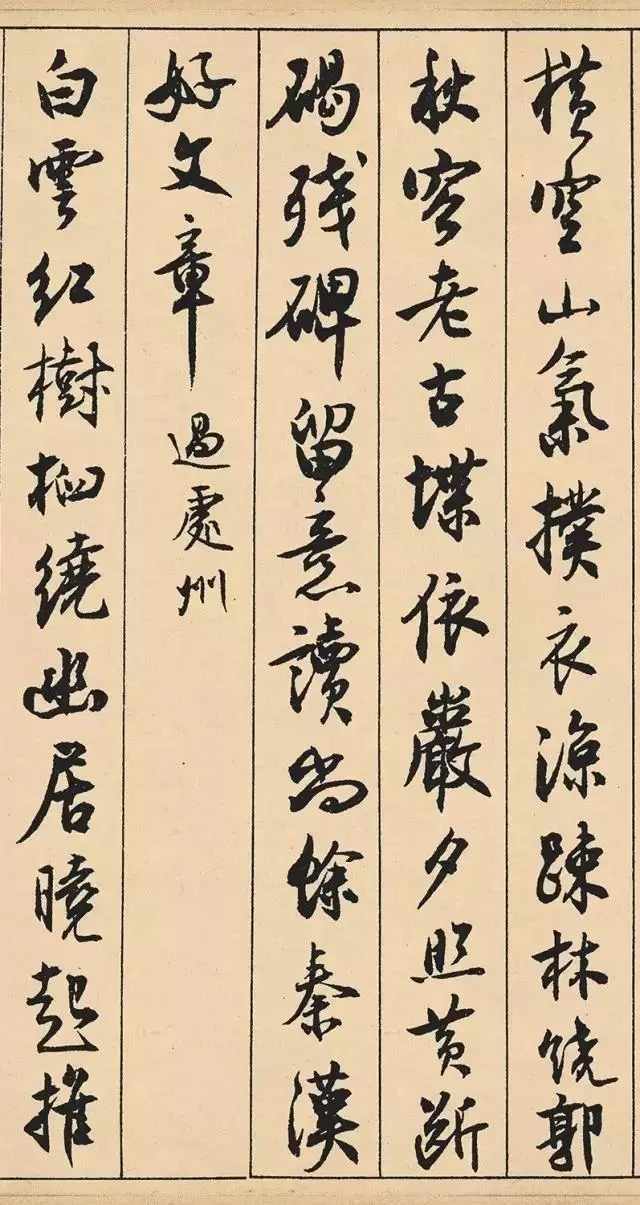 橫空山氣撲衣涼疎林饒郭
秋容老古堞依巖夕照黃斷
碣殘碑留意讀尚餘秦漢
好文章 過處州
白雲紅樹相繞幽居曉起推